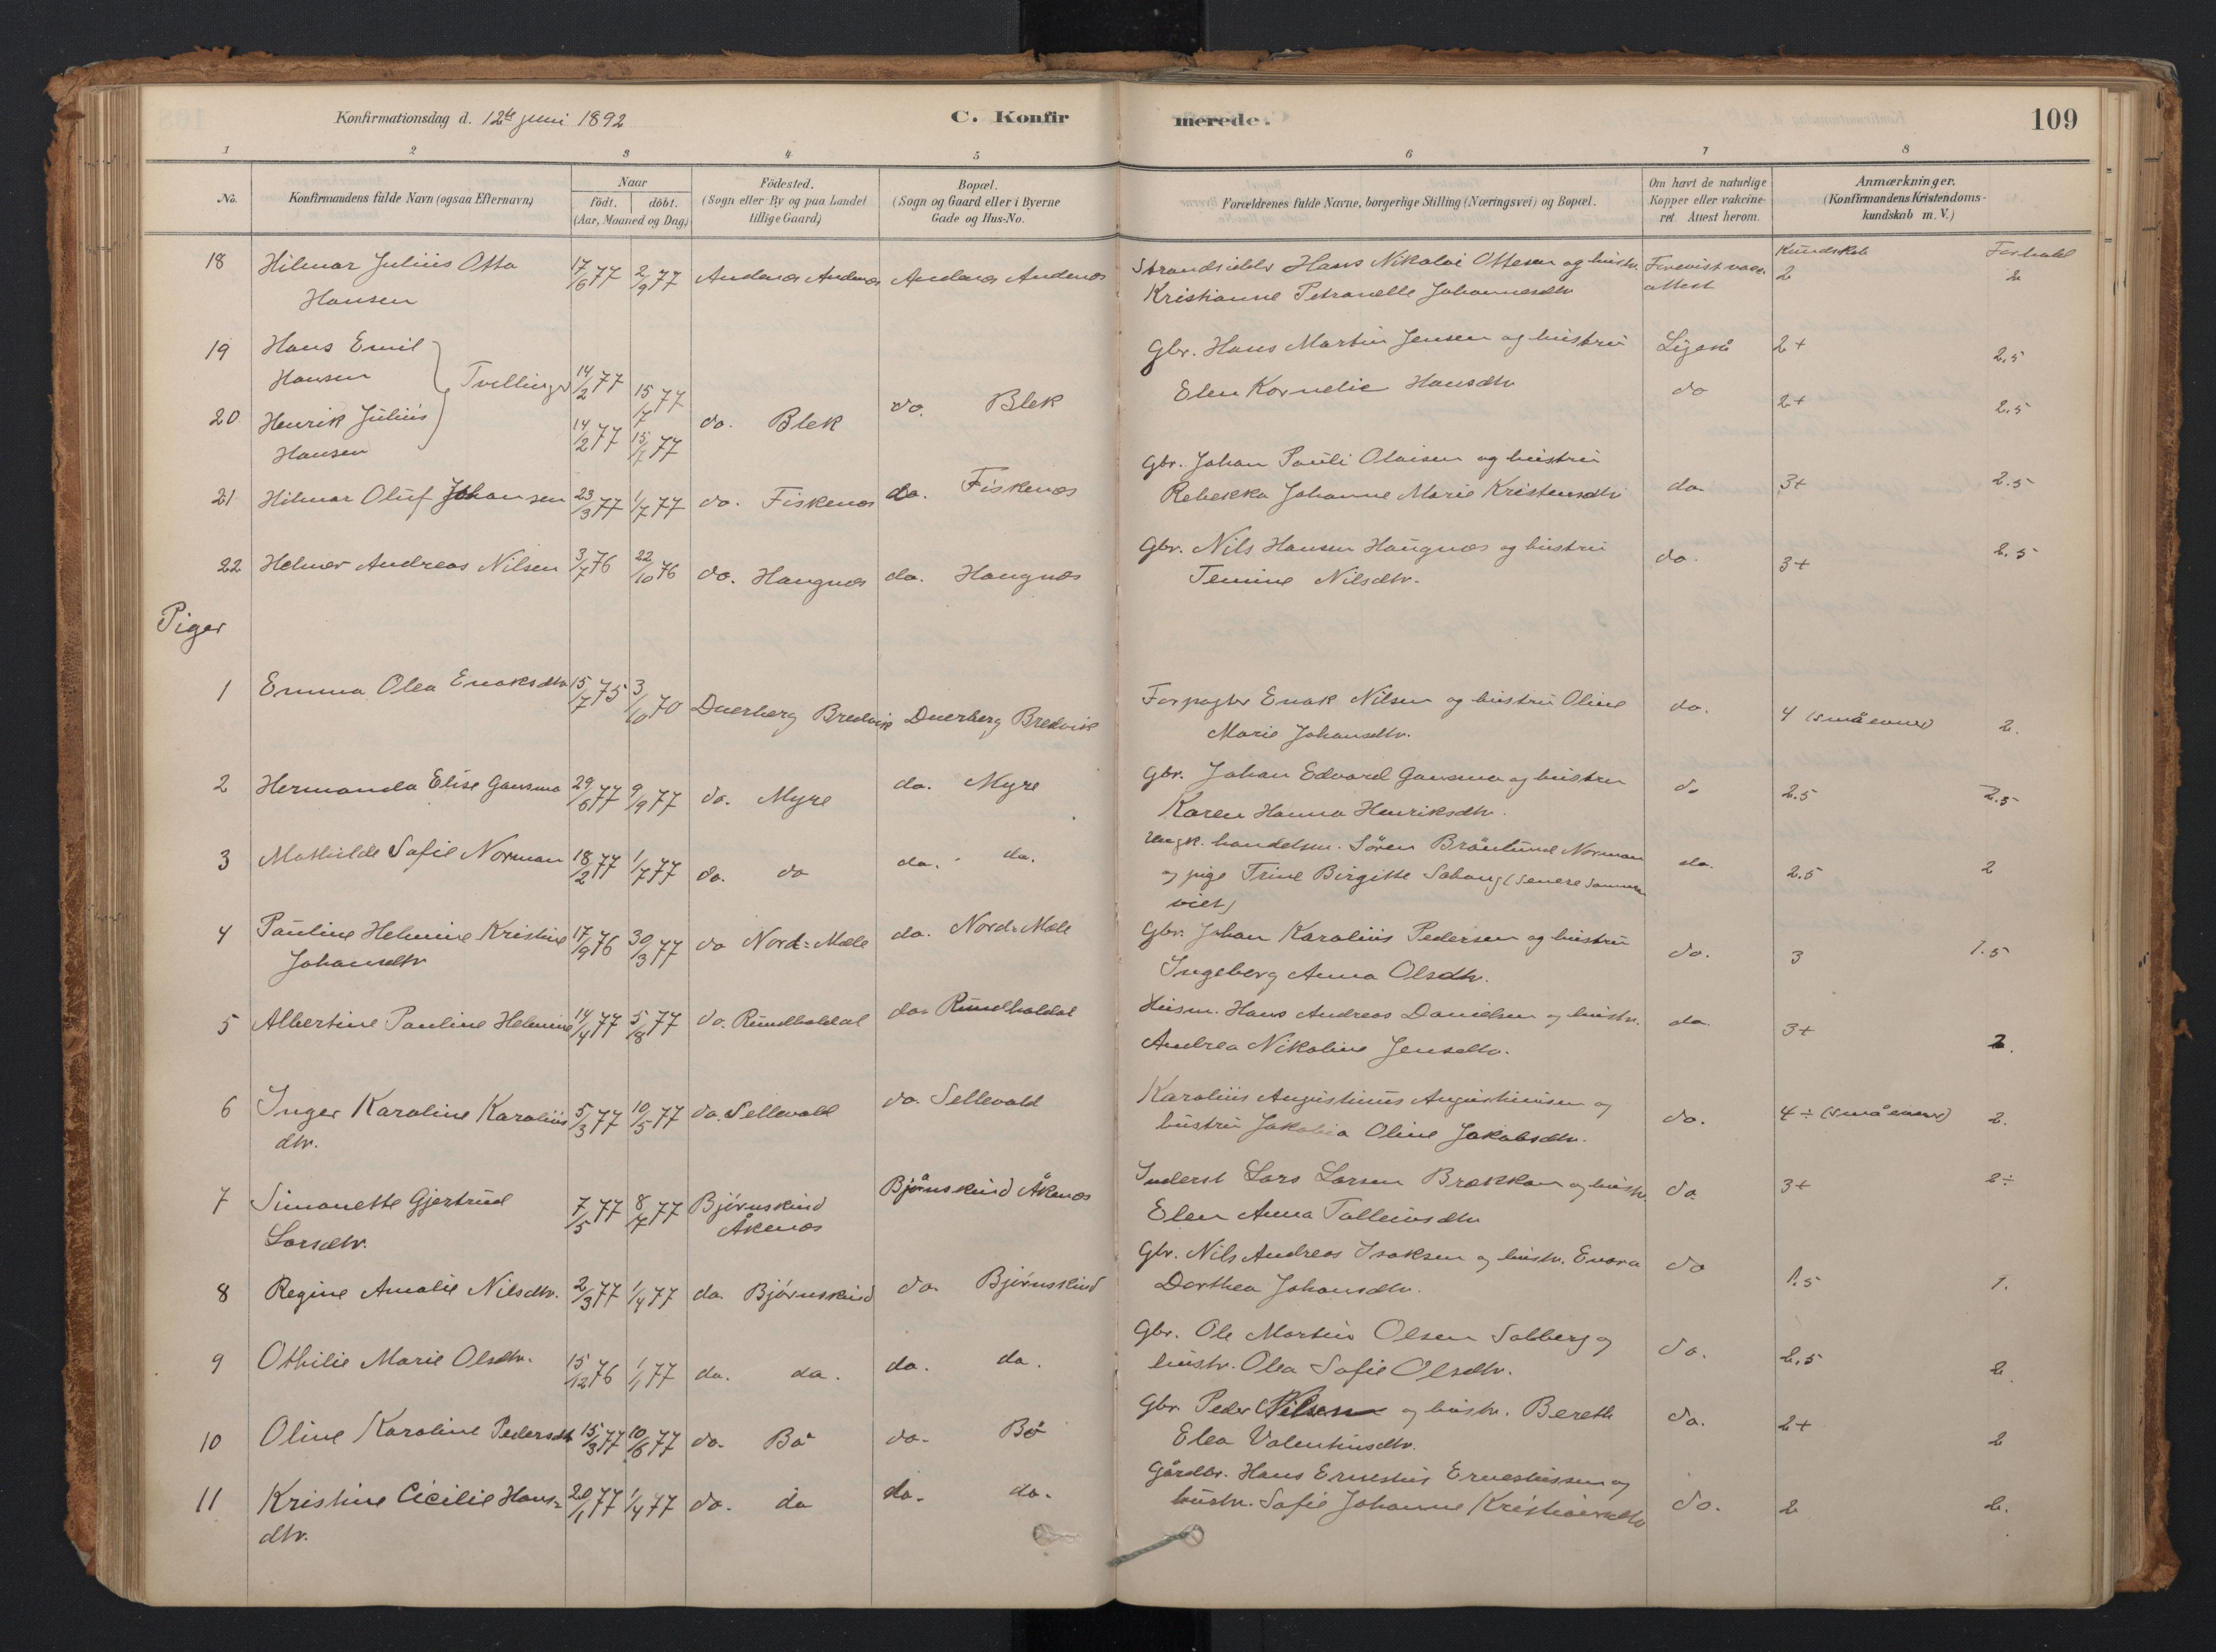 Konfirmationsdag d. 12te juni 1892
C. Konfirmerede.
109
1 2 3 4 5 6 7 8
No.
Konfirmandens fulde Navn (ogsaa Efternavn)
Naar
födt. döbt.
(Aar, Maaned og Dag)
Födested.
(Sogn eller By og paa Landet
tillige Gaard)
Bopæl.
(Sogn og Gaard eller i Byerne
Gade og Hus-No.
Forældrenes fulde Navne, borgerlige Stilling (Næringsvei) og Bopæl.
Om havt de naturlige
Kopper eller vakcine-
ret. Attest herom.
Anmærkninger.
(Konfirmandens Kristendoms-
kundskab m. V.)
Kundskab Forhold
18 Hilmar Julius Otto 17/6 77 2/9 77 Andenæs Andenæs Andenæs Andenæs Strandsidder Hans Nikolai Ottesen og hustr. Forevist vacc. 2 2
Hansen Kristianne Petranelle Johannesdtr attest
19 Hans Emil Gbr. Hans Martin Jensen og hustru Ligeså 2+ 2,5
Hansen Tvillinger 14/2 77 15/7 77 Elen Kornelie Hansdtr do
20. Henrik Julius 14/2 77 15/7 77 do. Blek do. Blek 2+ 2,5
Hansen
21 Hilmar Oluf Johansen 23/3 77 1/7 77 do. Fiskenes do. Fiskenes Gbr. Johan Pauli Olaisen og hustru do. 3+ 2.5
Rebekka Johanne Marie Kristensdtr
22 Helmer Andreas Nilsen 3/7 76 22/10 76 do. Haugnes do. Haugnes Gbr. Nils Hansen Haugnæs og hustru do. 3+ 2.5
Temine Nilsdtr.
Piger
1 Emma Olea Enoksdtr 15/7 75 3/10 70 Dverberg Bredvik Dverberg Bredvik Forpagter Enok Nilsen og hustru Oline do. 4 (små evner) 2.
Marie Johansdtr.
2 Hermanda Elise Gansmo 29/6 77 9/9 77 do. Myre do. Myre Gbr. Johan Edvard Gansmo og hustru do 2.5 2.5
Karen Hanna Henriksdtr.
3 Mathilde Sofie Norman 18/2 77 1/7 77 do. do do. do. Ungk. handelsm. Sören Brönlund Norman do. 2.5 2
og pige Trine Birgitte (senere sammen
viet)
4 Pauline Helmine Kristine 17/9 76 30/3 77 do Nord=Mæle do. Nord=Mæle Gbr. Johan Karolius Pedersen og hustru do. 3 1.5
Johansdtr Ingeborg Anna Olsdtr.
5 Albertine Pauline Helmine 14/4 77 5/8 77 do. Rundholdal do. Rundholdal Husm. Hans Andreas Danielsen og hustr. do. 3+ 2.
Andrea Nikoline Jensdtr.
6 Inger Karoline Karolius 5/3 77 10/5 77 do. Sellevold do. Sellevold Karolius Augustinus Augustinusen og do. 4÷ (små evner) 2.
dtr. hustru Jakobia Oline Jakobsdtr.
7 Simonette Gjertrud 7/5 77 8/7 77 Björnskind Björnskind Åkenes Inderst Lars Larsen Brækkan og hustr. do. 3+ 2÷
Larsdtr. Åkenes Elen Anna Tolleivsdtr
8 Regine Amalie Nilsdtr. 2/3 77 1/4 77 do. Björnskind do. Björnskind Gbr. Nils Andreas Isaksen og hustr. Evora do 1.5 1.
Dorthea Johansdtr.
9 Othilie Marie Olsdtr. 15/12 76 1/1 77 do. do. do. do. Gbr. Ole Martin Olsen Solberg og do. 2,5 2.
hustr. Olea Sofie Olsdtr.
10 Oline Karoline Pedersdtr 15/3 77 10/6 77 do. Bö do. Bö Gbr. Peder Nilsen og hustr. Bereth do. 2+ 2
Elea Valentinsdtr.
11 Kristine Cicilie Hans= 20/1 77 1/4 77 do. do do. do. Gårdbr. Hans Ernestus Ernestussen og do. 2 2.
dtr. hustr. Sofie Johanne Kristiansdtr